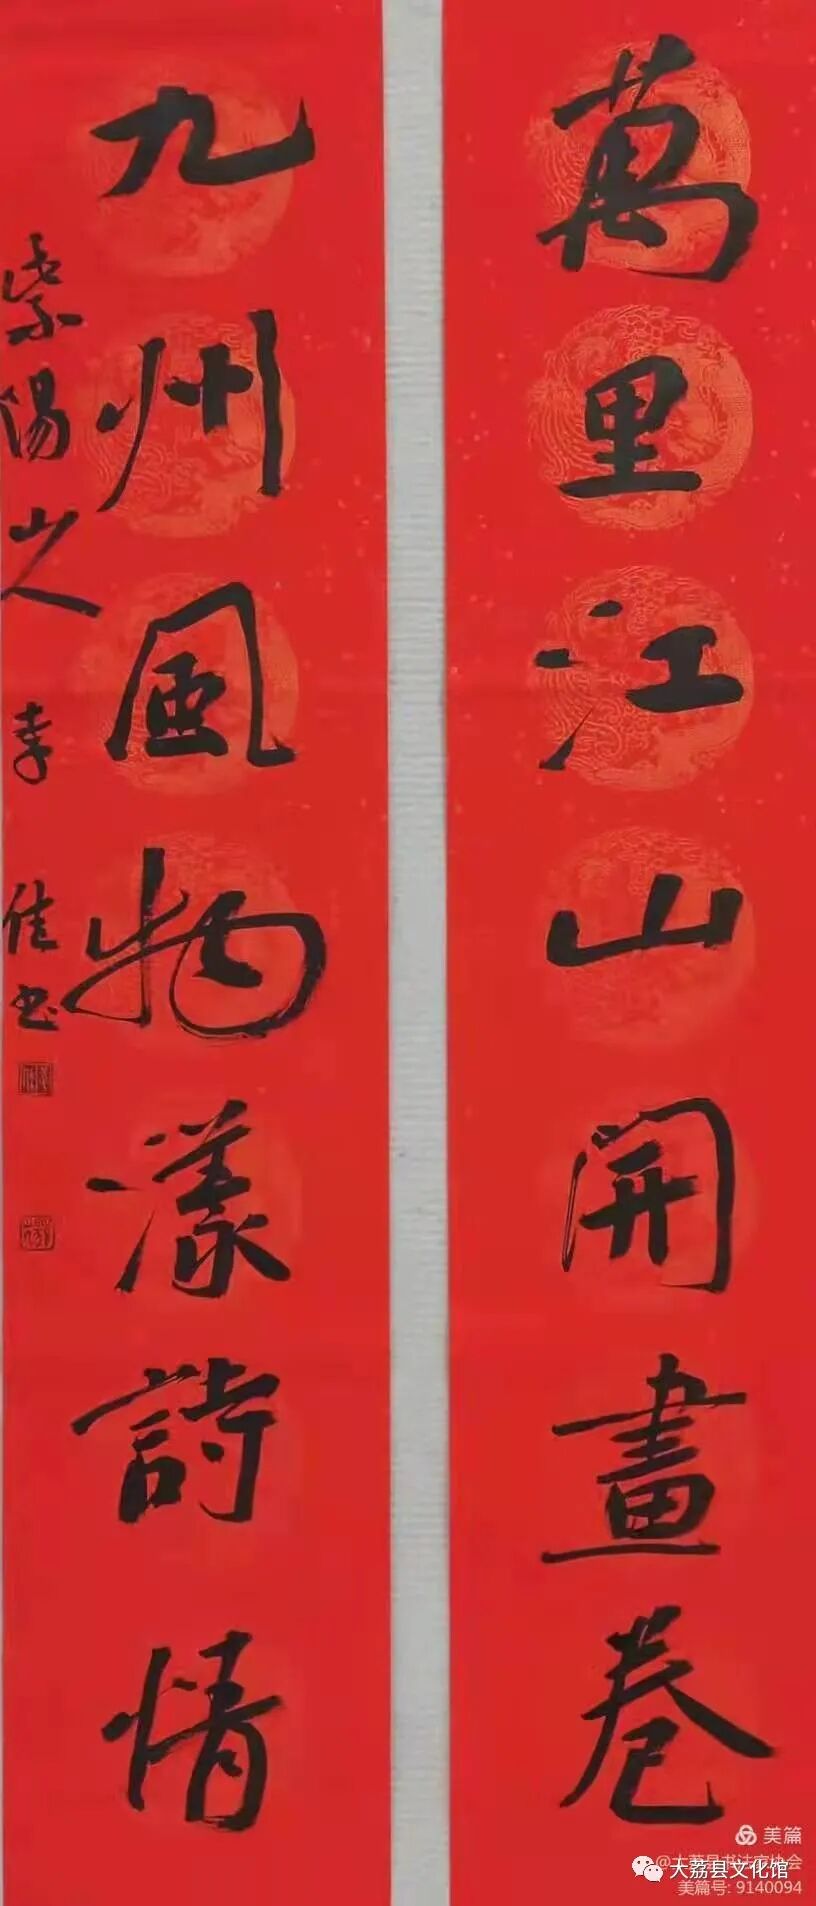 萬里江山開畫卷
九州風物漾詩情
紫陽山人李佳书
美篇
@大荔县书法家协会
大荔县文化馆
美篇号: 9140094